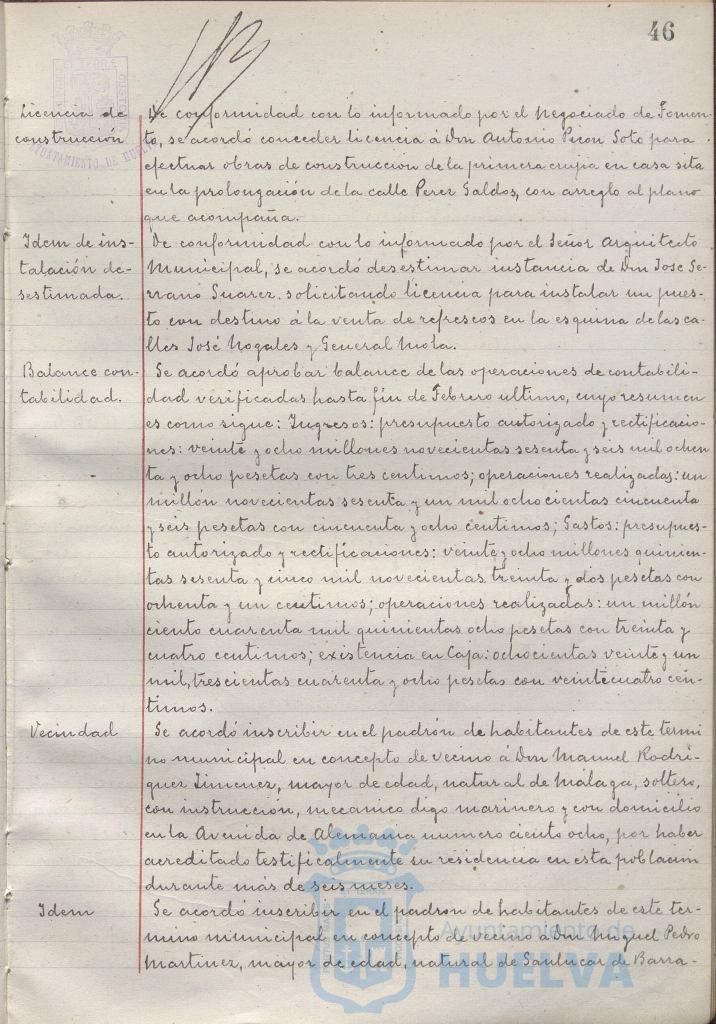 46
Licencia de
construcción
De conformidad con lo informado por el Negociado de Fomen-
to, se acordó conceder licencia á Don Antonio Picon Soto para
efectuar obras de construcción de la primera crujia en casa sita
en la prolongación de la calle Perez Galdos, con arreglo al plano
que acompaña.
Idem de ins-
talación de-
sestimada.
De conformidad con lo informado por el Señor Arquitecto
Municipal, se acordó desestimar instancia de Don Jose Se-
rrano Suarez. solicitando licencia para instalar un pues-
to con destino á la venta de refrescos en la esquina de las ca-
lles José Nogales y General Mola.
Balance con-
tabilidad.
Se acordó aprobar balance de las operaciones de contabili-
dad verificadas hasta fin de Febrero ultimo, cuyo resumen
es como sigue: Ingresos: presupuesto autorizado y rectificacio-
nes: veinte y ocho millones novecientas sesenta y seis mil ochen
ta y ocho pesetas con tres centimos; operaciones realizadas: un
millón novecientas sesenta y un mil ochocientas cincuenta
y seis pesetas con cincuenta y ocho centimos; Gastos: presupues-
to autorizado y rectificaciones: veinte y ocho millones quinien-
tas sesenta y cinco mil novecientas treinta y dos pesetas con
ochenta y un centimos; operaciones realizadas: un millón
ciento cuarenta mil quinientas ocho pesetas con treinta y
cuatro centimos; existencia en Caja: ochocientas veinte y un
mil, trescientas cuarenta y ocho pesetas con veinticuatro cén-
timos.
Vecindad
Se acordó inscribir en el padrón de habitantes de este termi
no municipal en concepto de vecino á Don Manuel Rodri-
guez Jimenez, mayor de edad, natural de Málaga, soltero,
con instrucción, mecanico digo marinero y con domicilio
en la Avenida de Alemania numero ciento ocho, por haber
acreditado testificalmente su residencia en esta población
durante más de seis meses.
Idem
Se acordó inscribir en el padron de habitantes de este ter-
mino municipal en concepto de vecino á Don Miguel Pedro
Martinez, mayor de edad, natural de Sanlucar de Barra-
AYUNTAMIENTO DE HUELVA
Ayuntamiento de
HUELVA